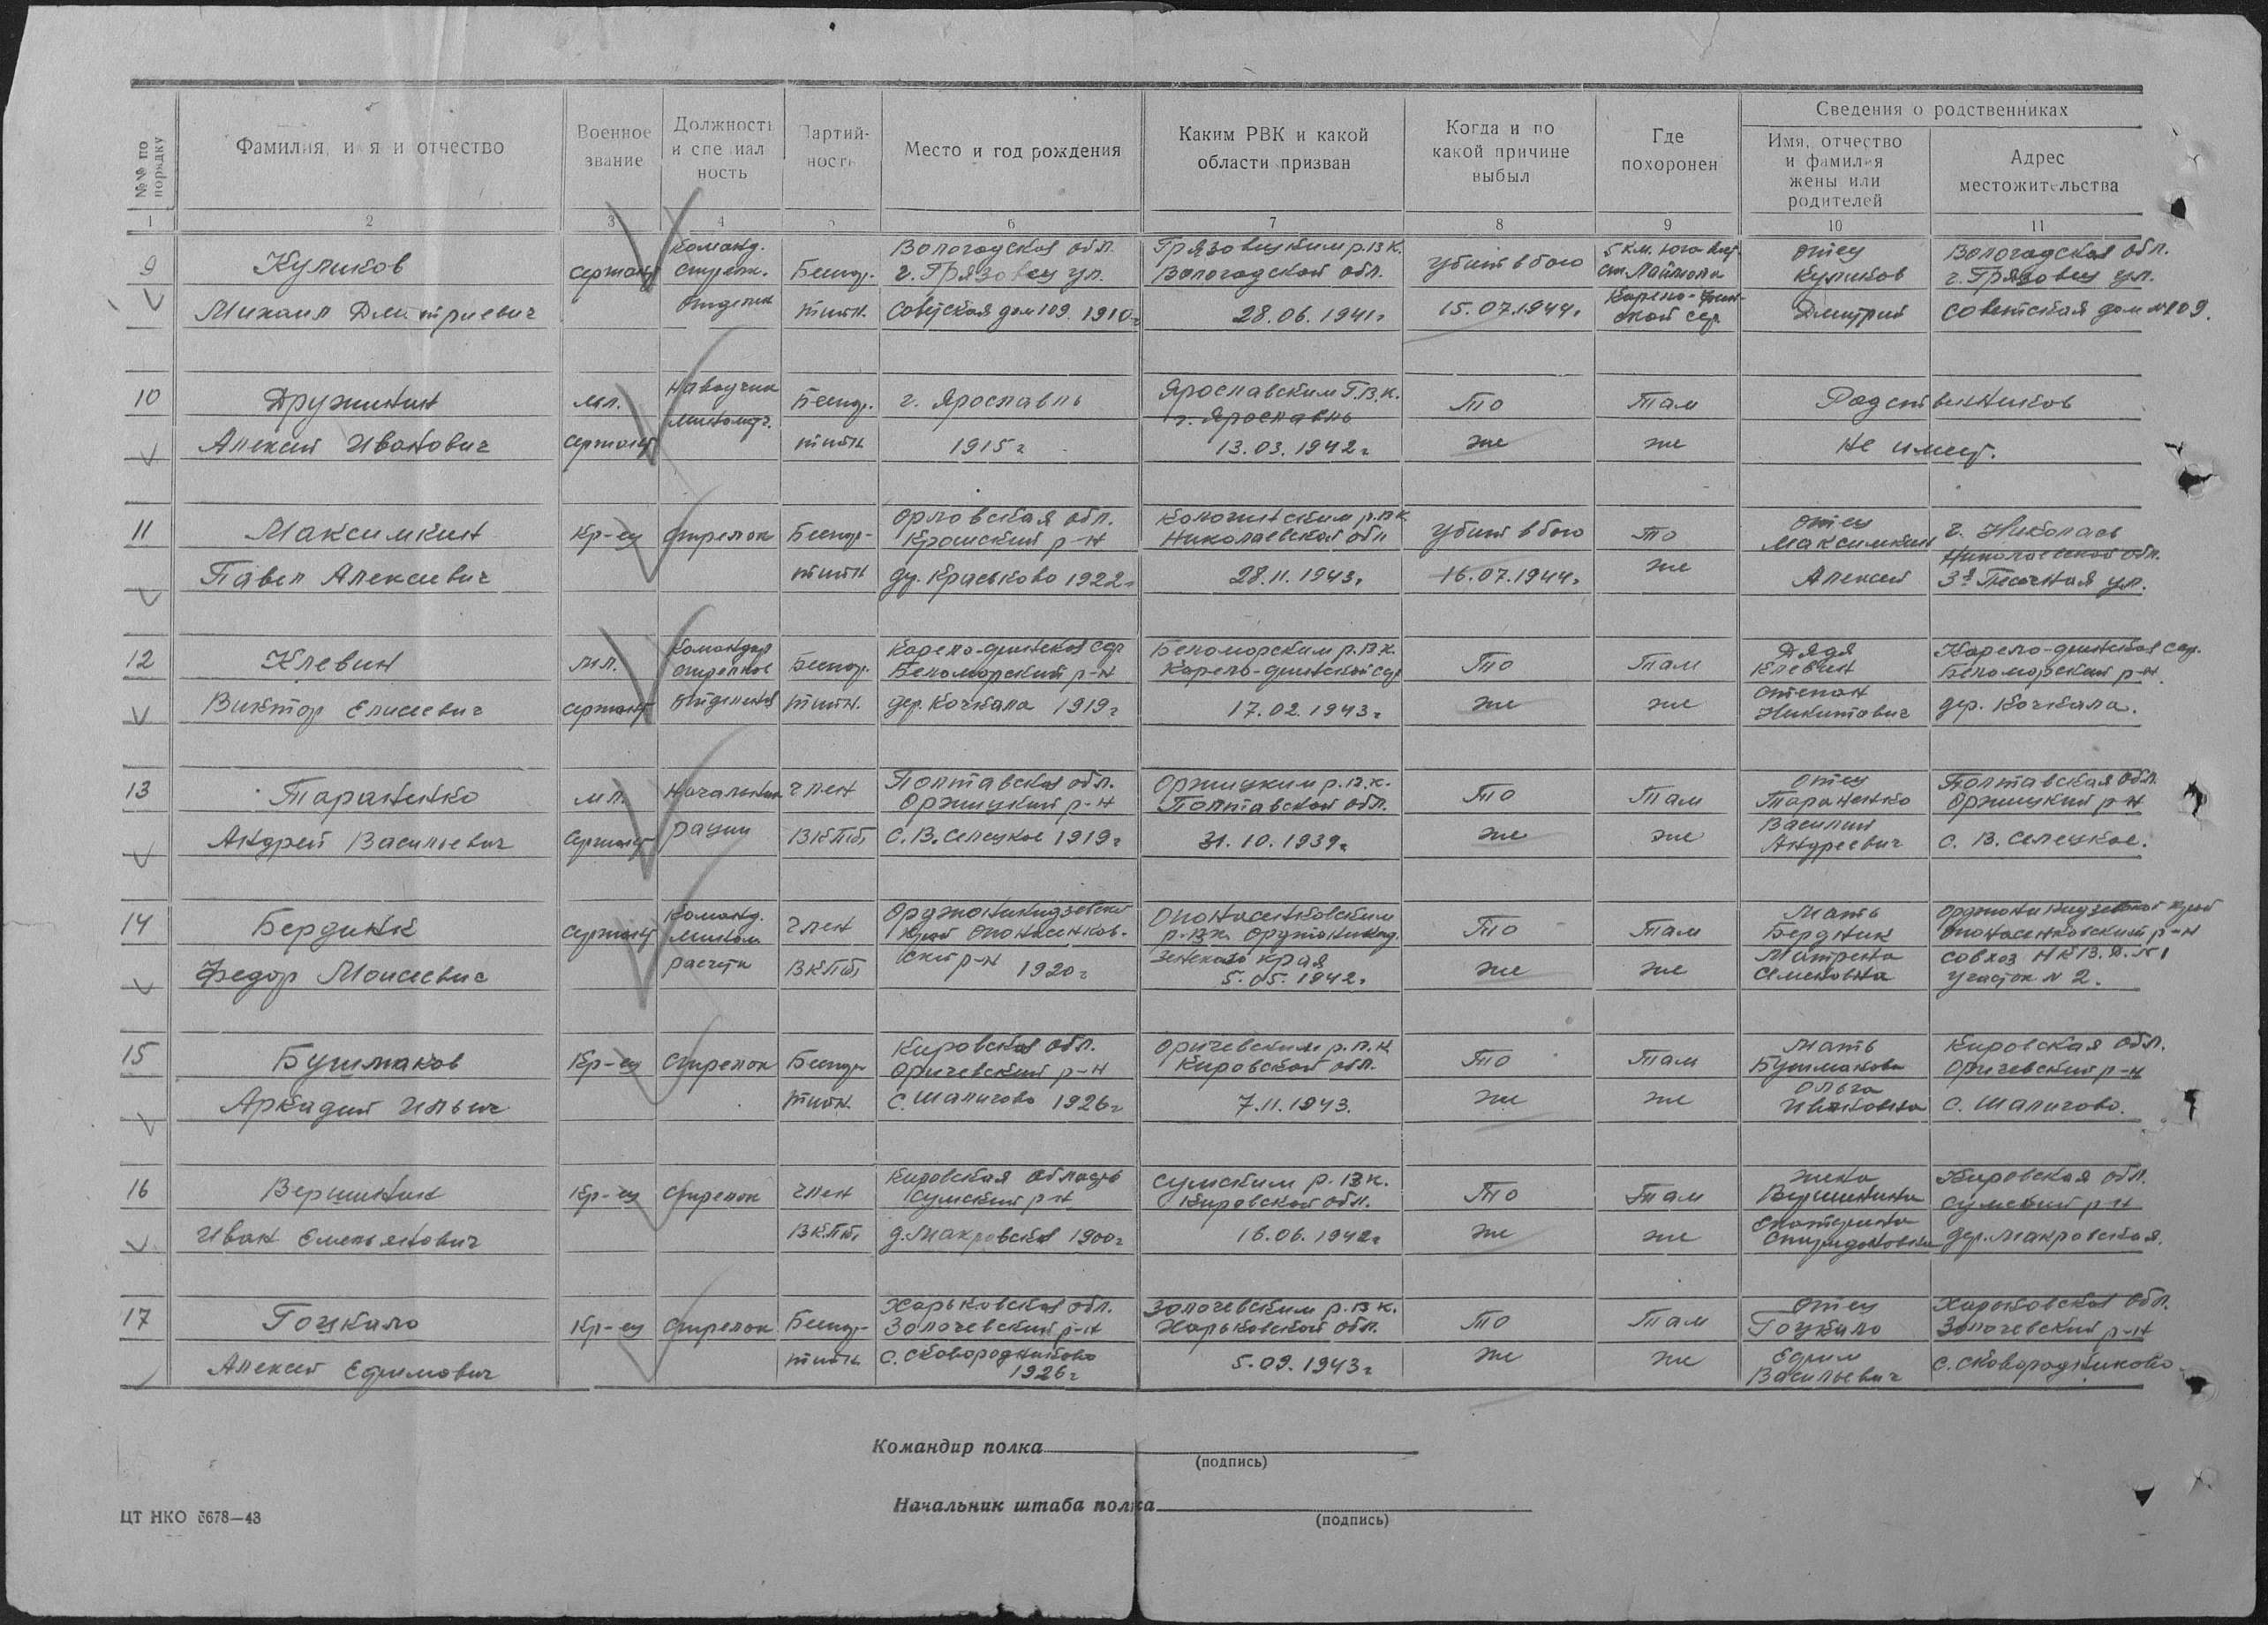 №№ по порядку
Фамилия, имя и отчество
Военное звание
Должность и специальность
Партийность
Место и год рождения
Каким РВК и какой области призван
Когда и по какой причине выбыл
Где похоронен
Сведения о родственниках
Имя, отчество и фамилия жены или родителей
Адрес местожительства
1 2 3 4 5 6 7 8 9 10 11
9 Куликов Михаил Дмитриевич
сержант
Команд. стрелк. отделен
Беспартийн.
Вологодская обл. г. Грязовец ул. Советская дом 109. 1910г
Грязовецким р.в.к. Вологодской обл. 28.06.1941г
убит в бою 15.07.1944г
5 км. юго вост. ст. Лаймола Карело-финской сср
отец Куликов Дмитрий
Вологодская обл. г. Грязовец ул. Советская дом №109.
10 Дружинин Алексей Иванович
мл. сержант
Наводчик миномет.
Беспартийн
г. Ярославль 1915г
Ярославским Г.В.К. г. Ярославль 13.03.1942г
То же
Там же
Родственников не имеет.
11 Максимкин Павел Алексеевич
Кр-ец
стрелок
Беспартийн
Орловская обл. Кромский р-н д. Краськово 1922г
Николаевской обл 28.11.1943г
убит в бою 16.07.1944г
То же
отец Максимкин Алексей
г. Николаев Николаевской обл. 3я Песочная ул.
12 Клевин Виктор Елисеевич
мл. сержант
Командир стрелков отделения
Беспартийн.
Карело-финская сср Беломорский р-н дер. Кочкала 1919г
Беломорским р.в.к. Карело-финской сср 17.02.1943г
То же
Там же
Дядя Клевин Степан Никитович
Карело-финская сср. Беломорский р-н. дер. Кочкала.
13 Тараненко Андрей Васильевич
мл. сержант
Начальник рации
член ВКПб
Полтавская обл. Оржицкий р-н с. В. Селецкое 1919г
Оржицким р.в.к. Полтавской обл. 31.10.1939г
То же
Там же
отец Тараненко Василий Андреевич
Полтавская обл. Оржицкий р-н с. В. Селецкое.
14 Бердник Федор Моисеевич
сержант
Команд. мином. расчета
член ВКПб
Орджоникидзевский край Опонасенковский р-н 1920г
Опонасенковским р.в.к. Орджоникидзевского края 5.05.1942г
То же
Там же
Мать Бердник Матрена Семеновна
Орджоникидзевский край Опонасенковский р-н совхоз НКВД №1 участок № 2.
15 Бушмаков Аркадий Ильич
Кр-ец
стрелок
Беспартийн.
Кировская обл. Оричевский р-н с. Шалигово 1926г
Оричевским р.в.к Кировской обл. 7.11.1943.
То же
Там же
Мать Бушмакова Ольга Ивановна
Кировская обл. Оричевский р-н с. Шалигово.
16 Вершинин Иван Емельянович
Кр-ец
стрелок
член ВКПб
Кировская область Сумский р-н д. Макровская 1900г
Сумским р.в.к. Кировской обл. 16.06.1942г
То же
Там же
жена Вершинина Екатерина Спиридоновна
Кировская обл. Сумский р-н дер. Макровская.
17 Гоцкало Алексей Ефимович
Кр-ец
стрелок
Беспартийн
Харьковская обл. Золочевский р-н с. Сковородниково 1926г
Золочевским р.в.к. Харьковской обл. 5.09.1943г
То же
Там же
отец Гоцкало Ефим Васильевич
Харьковская обл. Золочевский р-н с. Сковородниково
Командир полка
(подпись)
Начальник штаба полка
(подпись)
ЦТ НКО 6678—43